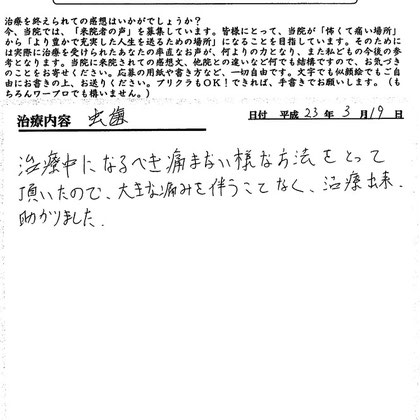 治療を終えられての感想はいかがでしょうか？
今、当院では、「来院者の声」を募集しています。皆様にとって、当院が「怖くて痛い場所」
から「より豊かで充実した人生を送るための場所」になることを目指しています。そのために
は実際に治療を受けられたあなたの率直なお声が、何よりの力となり、また私どもの今後の参
考となります。当院に来院されての感想文、他院との違いなど何でも結構ですので、お気づき
のことをお寄せください。応募の用紙や書き方など、一切自由です。文字でも似顔絵でもご自
由にお書きの上、お送りください。プリクラもOK！できれば、手書きでお願いします。（も
ちろんワープロでも構いません。）
治療内容 虫歯 日付 平成 23 年 3 月 19 日
治療中になるべき痛まない様な方法をとって
頂いたので、大きな痛みを伴うことなく、治療出来、
助かりました。